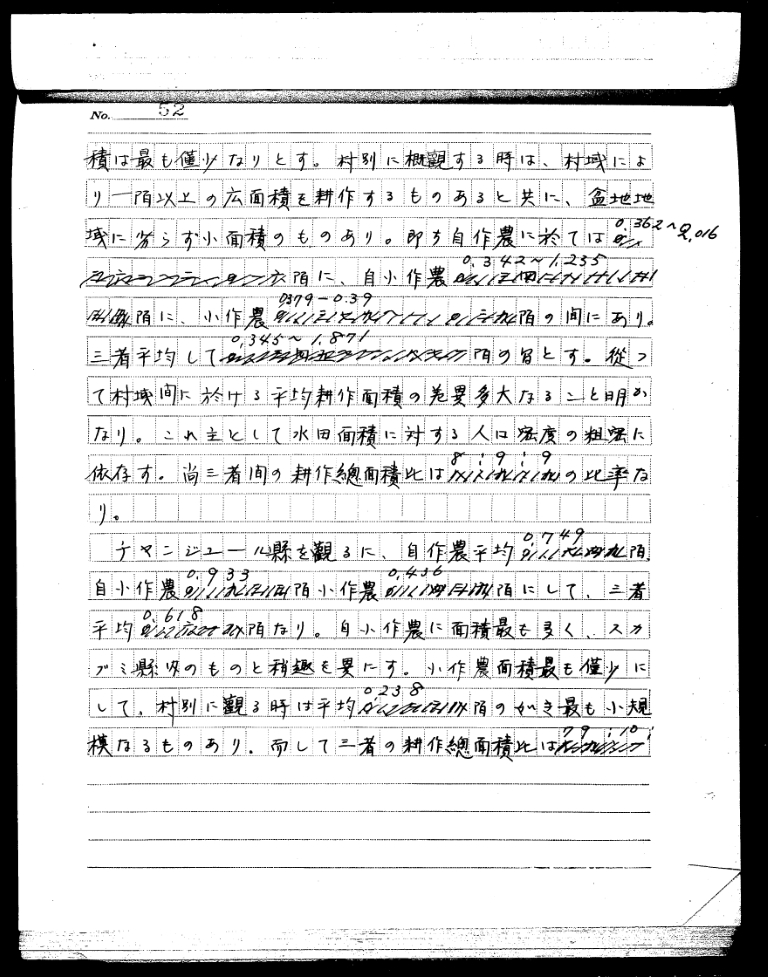 No. 52
積は最も僅少なりとす。村別に概観する時は、村域によ
り一陌以上の広面積を耕作するものあると共に、盆地地
域に劣らず小面積のものあり。即ち自作農に於ては0.362~2.016
陌に、自小作農0.342~1.235
陌に、小作農0.379-0.39陌の間にあり。
三者平均して0.345~1.871陌の旨とす。従つ
て村域間に於ける平均耕作面積の差異多大なること明か
なり。これ主として水田面積に対する人口密度の粗密に
依存す。尚三者間の耕作總面積比は8:9:9の比率な
り。
チヤンジュール縣を觀るに、自作農平均0.749陌、
自小作農0.933陌小作農0.436陌にして、三者
平均0.618陌なり。自小作農に面積最も多く、スカ
ブミ縣下のものと稍趣を異にす。小作農面積最も僅少に
して、村別に觀る時は平均0.238陌の如き最も小規
模なるものあり。而して三者の耕作總面積比は79:10: